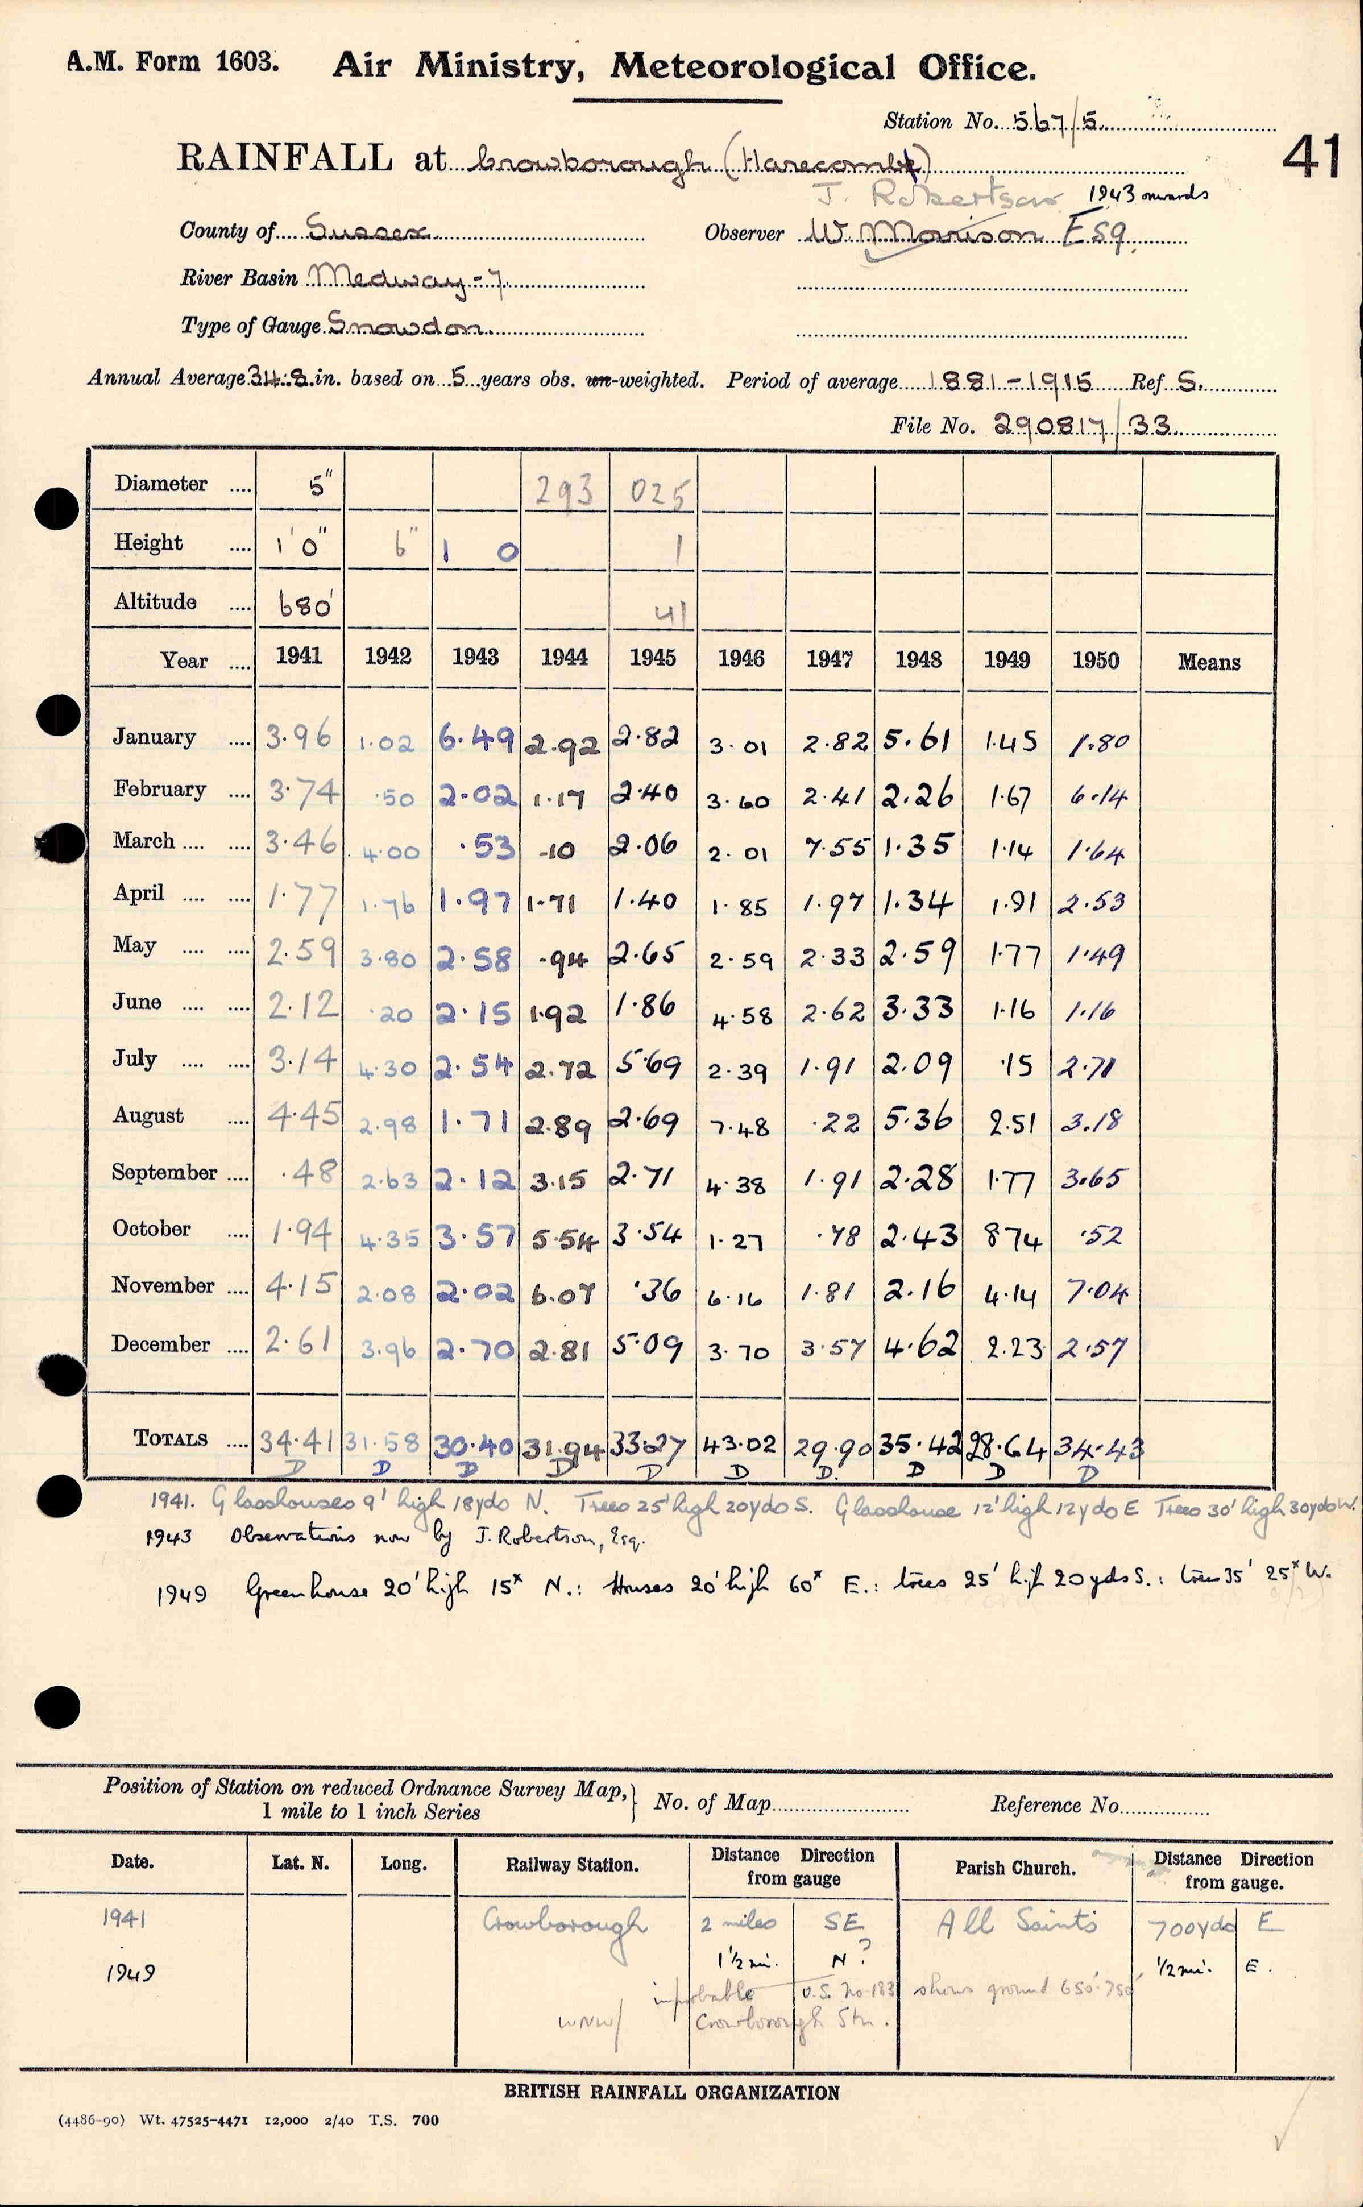 A.M. Form 1603. Air Ministry, Meteorological Office.
Station No. 567/5
41
RAINFALL at Crowborough (Harecombe)
J. Robertson 1943 onwards
County of Sussex Observer W. Morrison Esq.
River Basin Medway-7
Type of Gauge Snowdon
Annual Average 34.8 in. based on 5 years obs. un-weighted. Period of average 1881-1915 Ref S.
File No. 290817/33
Diameter .... 5" 293 025
Height .... 1'0" 6" 1 0 1
Altitude .... 680' 41
Year .... 1941 1942 1943 1944 1945 1946 1947 1948 1949 1950 Means
January .... 3.96 1.02 6.49 2.92 2.82 3.01 2.82 5.61 1.45 1.80
February .... 3.74 .50 2.02 1.17 2.40 3.60 2.41 2.26 1.67 6.14
March .... .... 3.46 4.00 .53 .10 2.06 2.01 7.55 1.35 1.14 1.64
April .... .... 1.77 1.76 1.97 1.71 1.40 1.85 1.97 1.34 1.91 2.53
May .... .... 2.59 3.80 2.58 .94 2.65 2.59 2.33 2.59 1.77 1.49
June .... .... 2.12 .20 2.15 1.92 1.86 4.58 2.62 3.33 1.16 1.16
July .... .... 3.14 4.30 2.54 2.72 5.69 2.39 1.91 2.09 .15 2.71
August .... 4.45 2.98 1.71 2.89 2.69 7.48 .22 5.36 2.51 3.18
September .... .48 2.63 2.12 3.15 2.71 4.38 1.91 2.28 1.77 3.65
October .... 1.94 4.35 3.57 5.54 3.54 1.27 .78 2.43 8.74 .52
November .... 4.15 2.08 2.02 6.07 .36 6.16 1.81 2.16 4.14 7.04
December .... 2.61 3.96 2.70 2.81 5.09 3.70 3.57 4.62 2.23 2.57
TOTALS .... 34.41 31.58 30.40 31.94 33.27 43.02 29.90 35.42 28.64 34.43
D D D D D D D D D D
1941. Glasshouses 9' high 18yds N. Trees 25' high 20yds S. Glasshouse 12' high 12yds E Trees 30' high 30yds W.
1943 Observations now by J. Robertson, Esq.
1949 Greenhouse 20' high 15x N.: Houses 20' high 60x E.: trees 25' high 20yds S.: trees 35' 25x W.
Position of Station on reduced Ordnance Survey Map, 1 mile to 1 inch Series } No. of Map Reference No.
Date. Lat. N. Long. Railway Station. Distance Direction from gauge Parish Church. Distance Direction from gauge.
1941 Crowborough 2 miles SE All Saints 700yds E
1949 1½ mi. N ? ½ mi. E.
improbable O.S. No 183 shows ground 650'-750'
WNW/ Crowborough Stn.
BRITISH RAINFALL ORGANIZATION
(4486-90) Wt. 47525-4471 12,000 2/40 T.S. 700